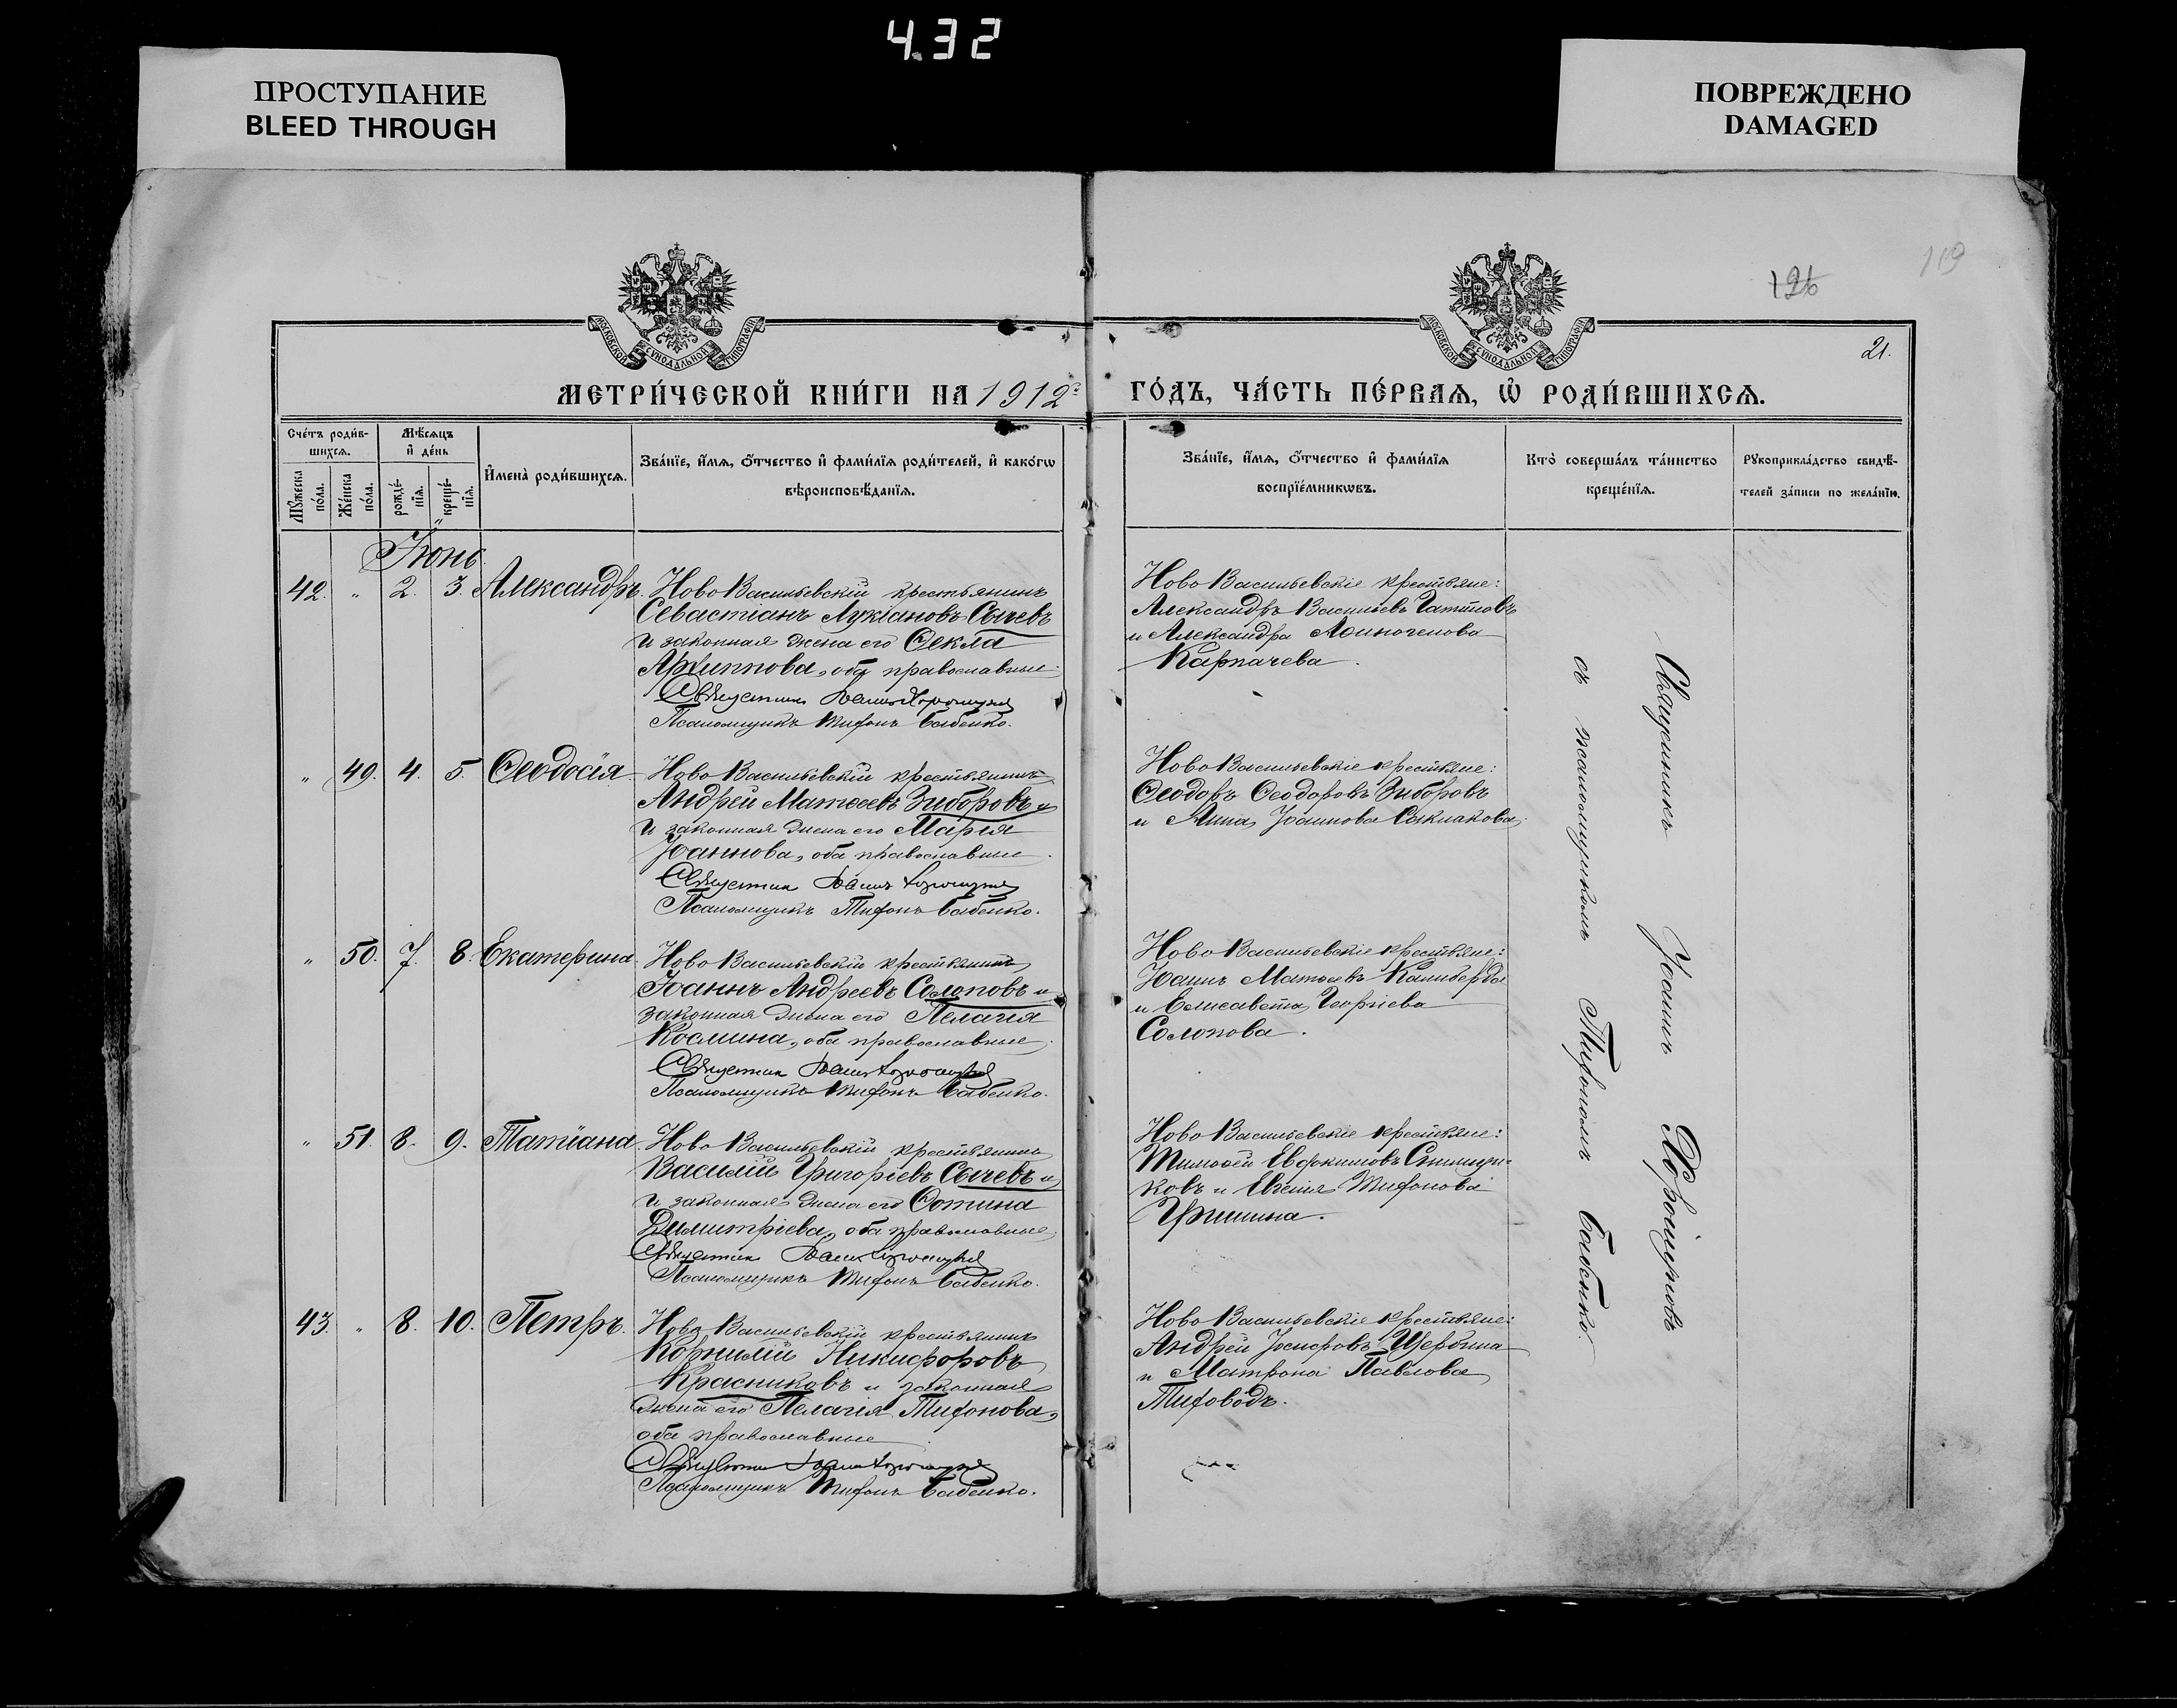 4.32
ПРОСТУПАНИЕ
BLEED THROUGH
ПОВРЕЖДЕНО
DAMAGED
119
126
21.
МОСКОВСКОЙ СѴНОДАЛЬНОЙ ТИПОГРАФІИ
МОСКОВСКОЙ СѴНОДАЛЬНОЙ ТИПОГРАФІИ
МЕТРИ́ЧЕСКОЙ КНИ́ГИ НА 1912 г
ГО́ДЪ, ЧА́СТЬ ПЕ́РВАѦ, Ѡ҆ РОДИ́ВШИХСѦ.
Сче́тъ роди́в-
шихсѧ.
Мꙋ́жеска по́ла.
Же́нска по́ла.
Мѣ́сѧцъ
и҆ де́нь
рожде́-
нїѧ.
креще́-
нїѧ.
И҆мена̀ роди́вшихсѧ.
Зва́нїе, и҆́мѧ, ѻ҆́тчество и҆ фами́лїѧ роди́телей, и҆ како́гѡ
вѣроисповѣ́данїѧ.
Зва́нїе, и҆́мѧ, ѻ҆́тчество и҆ фами́лїѧ
воспрїе́мникѡвъ.
Кто̀ соверша́лъ та́инство
креще́нїѧ.
Рꙋкоприкла́дство свидѣ́-
телей за́писи по жела́нїю.
Іюнь
42. " 2. 3. Александръ.
Ново Васильевскій крестьянинъ
Севастіанъ Лукіановъ Сычевъ
и законная жена его Ѳекла
Архиппова, оба православные
Священникъ Іоаннъ Хорошуновъ
Псаломщикъ Тихонъ Бабенко.
Ново Васильевскіе крестьяне:
Александръ Васильевъ
и Александра Аѳиногенова
Карпачева.
" 49. 4. 5. Ѳеодосія.
Ново Васильевскій крестьянинъ
Андрей Матѳеевъ Зиборовъ и
и законная жена его Марія
Іоаннова, оба православные.
Священникъ Іоаннъ Хорошуновъ
Псаломщикъ Тихонъ Бабенко.
Ново Васильевскіе крестьяне:
Ѳеодоръ Ѳеодоровъ Зиборовъ
и Анна Іоаннова
" 50. 7. 8. Екатерина.
Ново Васильевскій крестьянинъ
Іоаннъ Андреевъ Солоповъ и
законная жена его Пелагія
Космина, оба православные.
Священникъ Іоаннъ Хорошуновъ
Псаломщикъ Тихонъ Бабенко.
Ново Васильевскіе крестьяне:
Іоаннъ Матѳеевъ Калиберда
и Елисавета Георгіева
Солопова.
" 51. 8. 9. Татіана.
Ново Васильевскій крестьянинъ
Василій Григорьевъ Сычевъ и
и законная жена его Фотина
Димитріева, оба православные.
Священникъ Іоаннъ Хорошуновъ
Псаломщикъ Тихонъ Бабенко.
Ново Васильевскіе крестьяне:
Тимоѳей Евфкимовъ
ковъ и Евгенія Тихонова
Гришина.
43. " 8. 10. Петръ.
Ново Васильевскій крестьянинъ
Корнилій Никифоровъ
Красниковъ и законная
жена его Пелагія Тихонова,
оба православные
Священникъ Іоаннъ Хорошуновъ
Псаломщикъ Тихонъ Бабенко.
Ново Васильевскіе крестьяне:
Андрей Іосифовъ Щербина
и Матрона Павлова
Тиховодъ.
Священникъ Іоаннъ Хорошуновъ
съ псаломщикомъ Тихономъ Бабенко.